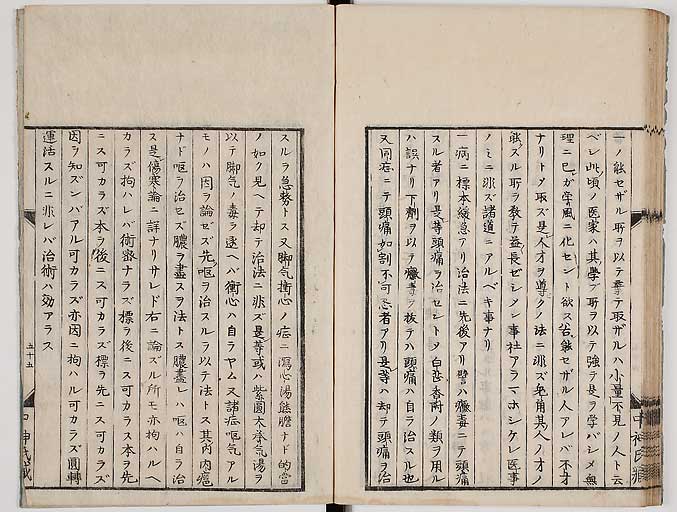 一ノ能セザル所ヲ以テ挙テ取ザルハ小量不見ノ人ト云
ベシ此頃ノ医家ハ其学ブ所ヲ以テ強テ是ヲ学バシメ無
理ニ己ガ学風ニ化セント欲ス若能セザル人アレバ不才
ナリトメ取ズ是人才ヲ導クノ法ニ非ズ兎角其人ノ才ノ
能スル所ヲ教テ益長ゼシメン事社アラマホシケレ医事
ノミニ非ズ諸道ニアルベキ事ナリ
一病ニ標本緩急アリ治法ニ先後アリ譬ハ黴毒ニテ頭痛
スル者アリ是等頭痛ヲ治セントメ白芷香附ノ類ヲ用ル
ハ誤ナリ下剤ヲ以テ黴毒ヲ抜テハ頭痛ハ自ラ治スル也
又同症ニテ頭痛如割不可忍者アリ是等ハ却テ頭痛ヲ治
スルヲ急務トス又脚気衝心ノ症ニ瀉心湯熊膽ナド的当
ノ如ク見ヘテ却テ治法ニ非ズ是等或ハ紫圓木挙気湯ヲ
以テ脚気ノ毒ヲ逐ヘバ衝心ハ自ラヤム又諸症嘔気アル
モノハ因ヲ論ゼズ先嘔ヲ治スルヲ以テ法トス其内肉癰
ナド嘔ヲ治セズ膿ヲ盡スヲ法トス膿盡レハ嘔ハ自ラ治
ス是傷寒論ニ詳ナリサレド右ニ論ズル所モ亦拘ハルヘ
カラズ拘ハレバ術密ナラズ標ヲ後ニス可カラス本ヲ先
ニス可カラズ本ヲ後ニス可カラズ標ヲ先ニス可カラズ
因ヲ知ズンバアル可カラズ亦因ニ拘ハル可カラズ圓轉
運活スルニ非レバ治術ハ効アラス
五十五